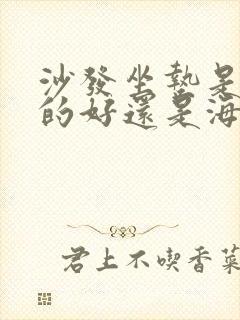 沙發坐墊是
的好還是海
君上不喫香菜